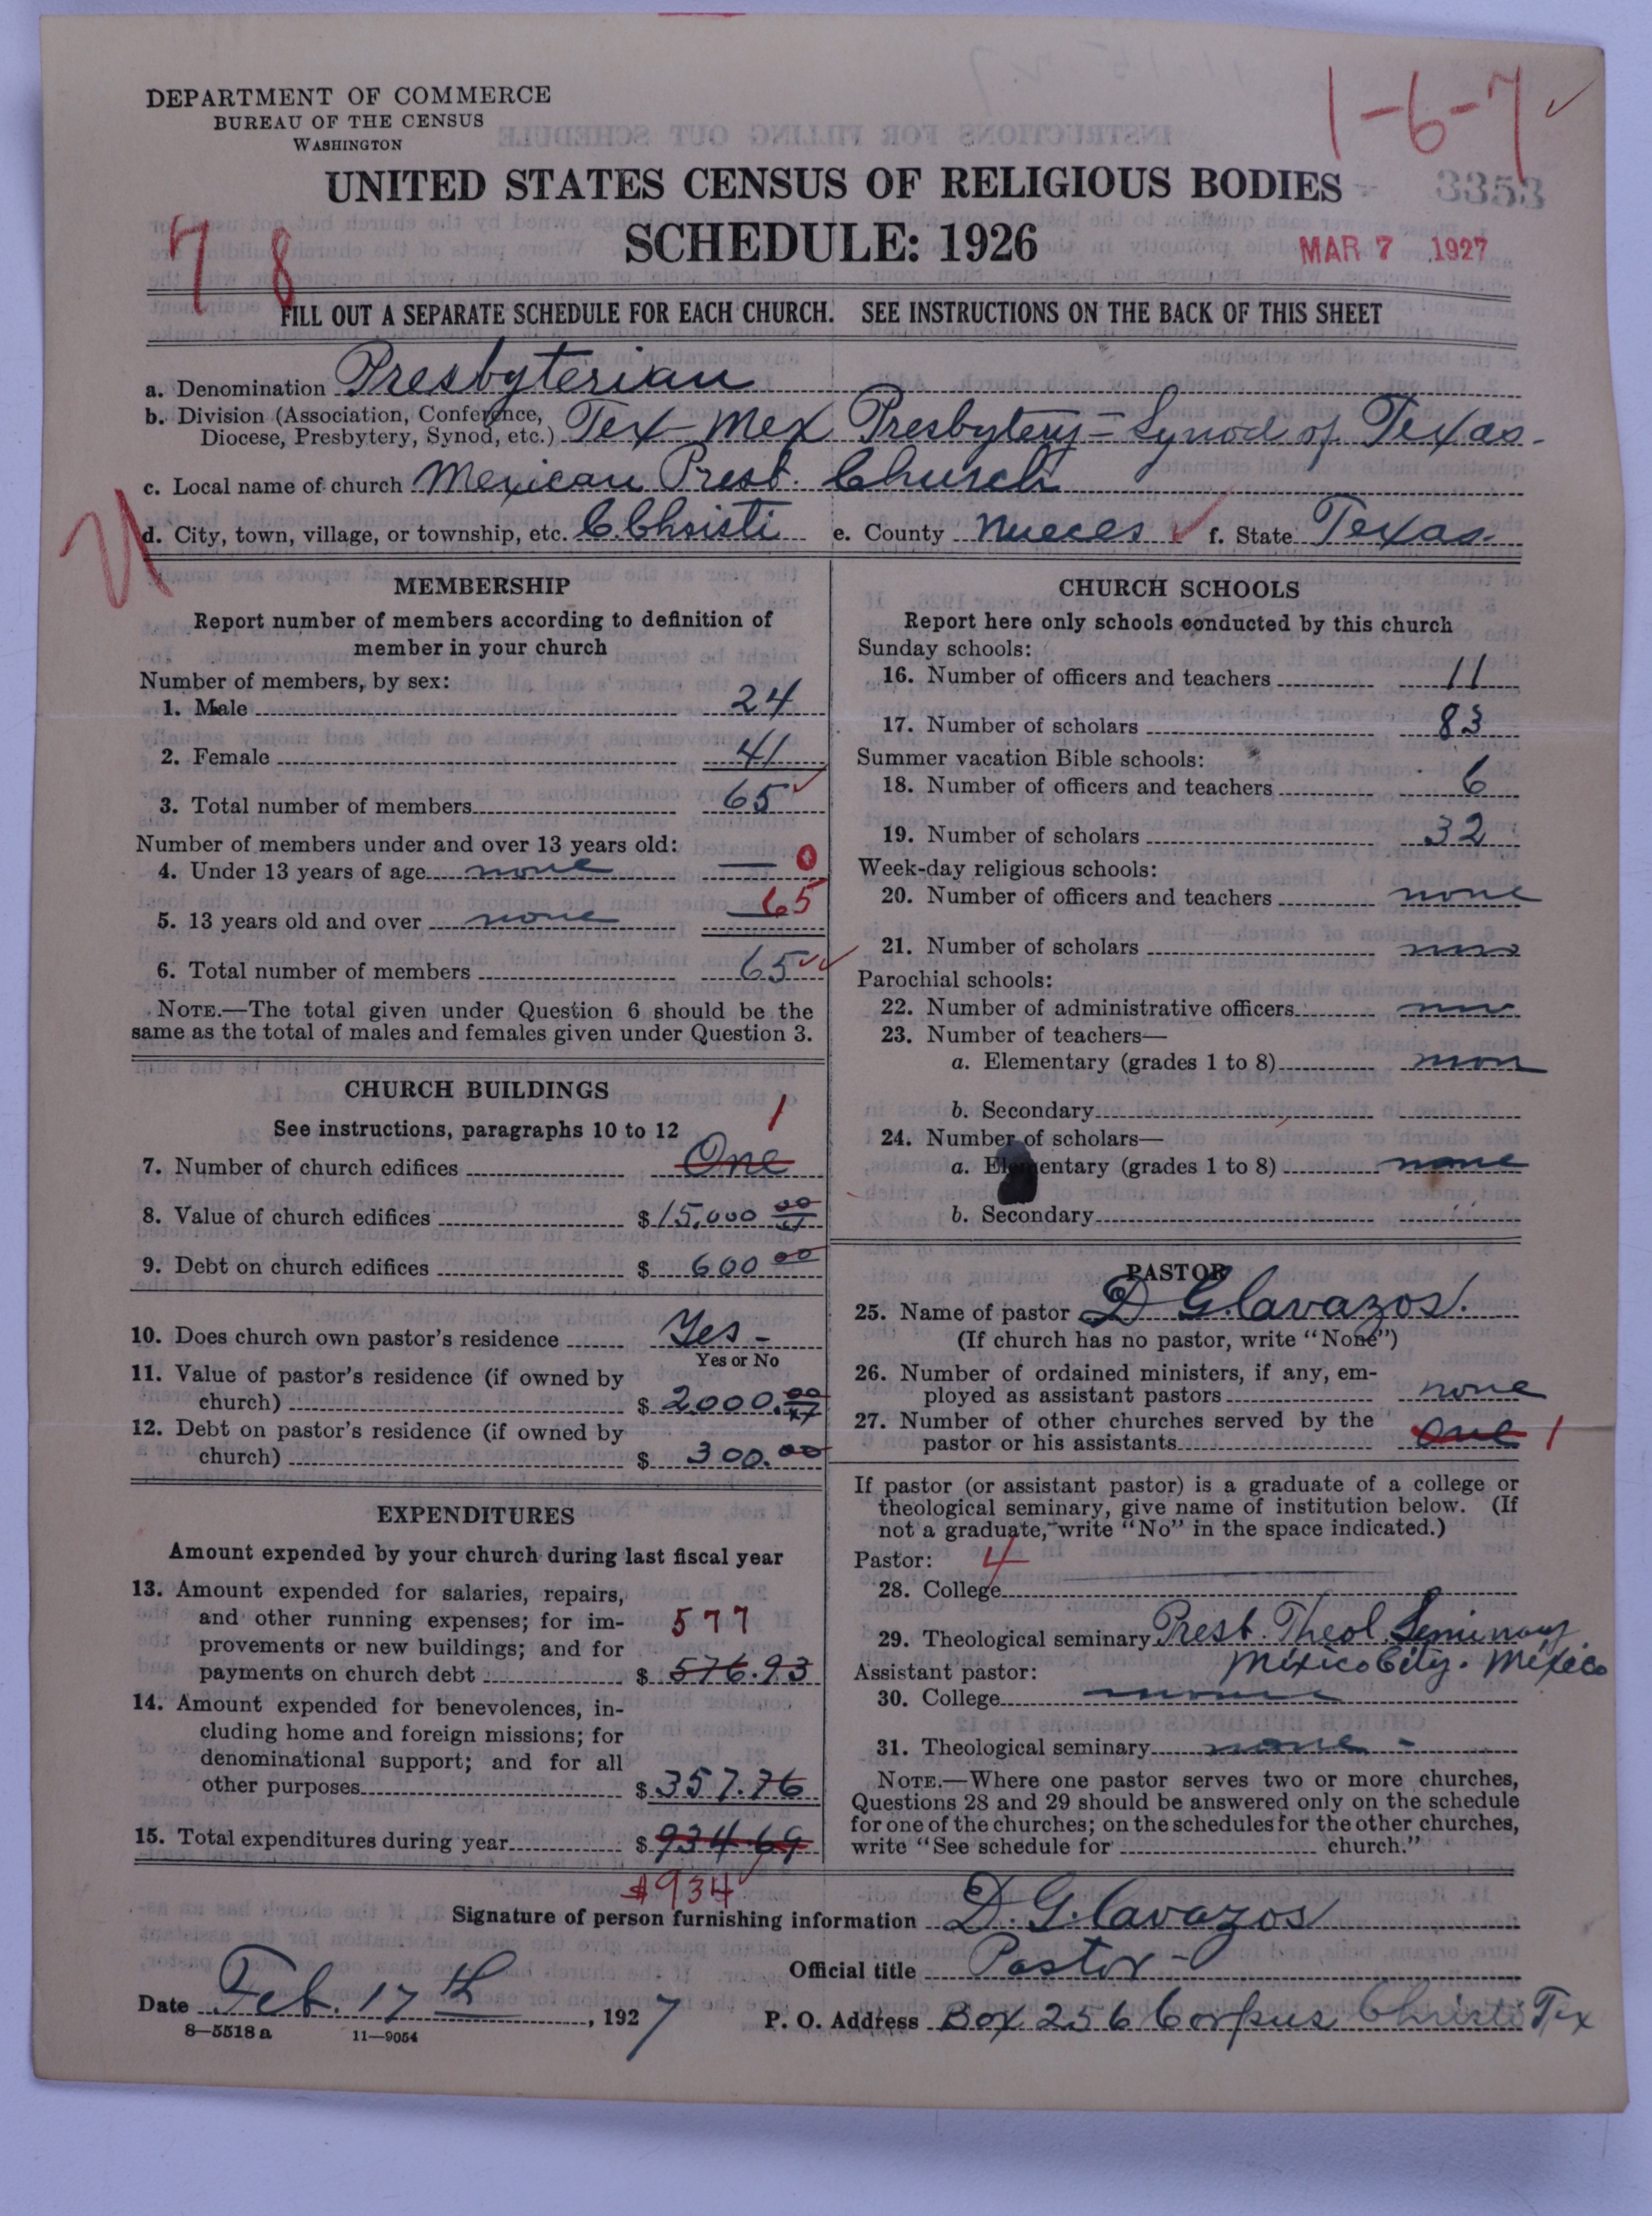 1-6-7 ✓
DEPARTMENT OF COMMERCE
BUREAU OF THE CENSUS
WASHINGTON
UNITED STATES CENSUS OF RELIGIOUS BODIES
3353
SCHEDULE: 1926
MAR 7 1927
7 8
FILL OUT A SEPARATE SCHEDULE FOR EACH CHURCH. SEE INSTRUCTIONS ON THE BACK OF THIS SHEET
a. Denomination Presbyterian
b. Division (Association, Conference,
Diocese, Presbytery, Synod, etc.) Tex-Mex Presbytery - Synod of Texas.
c. Local name of church Mexican Presb. Church
d. City, town, village, or township, etc. C. Christi e. County Nueces ✓ f. State Texas.
MEMBERSHIP
Report number of members according to definition of
member in your church
Number of members, by sex:
1. Male 24
2. Female 41
3. Total number of members 65 ✓
Number of members under and over 13 years old:
4. Under 13 years of age none — 0
5. 13 years old and over none 65
6. Total number of members 65 ✓✓
NOTE.—The total given under Question 6 should be the
same as the total of males and females given under Question 3.
CHURCH BUILDINGS
See instructions, paragraphs 10 to 12 1
7. Number of church edifices One
8. Value of church edifices $15,000 00/xx
9. Debt on church edifices $ 600 00
10. Does church own pastor's residence Yes -
Yes or No
11. Value of pastor's residence (if owned by
church) $ 2000.00/xx
12. Debt on pastor's residence (if owned by
church) $ 300.00
EXPENDITURES
Amount expended by your church during last fiscal year
13. Amount expended for salaries, repairs,
and other running expenses; for im- 577
provements or new buildings; and for
payments on church debt $ 576.93
14. Amount expended for benevolences, in-
cluding home and foreign missions; for
denominational support; and for all
other purposes $ 357.76
15. Total expenditures during year $ 934.69
$934
CHURCH SCHOOLS
Report here only schools conducted by this church
Sunday schools:
16. Number of officers and teachers 11
17. Number of scholars 83
Summer vacation Bible schools:
18. Number of officers and teachers 6
19. Number of scholars 32
Week-day religious schools:
20. Number of officers and teachers none
21. Number of scholars none
Parochial schools:
22. Number of administrative officers
23. Number of teachers—
a. Elementary (grades 1 to 8)
b. Secondary
24. Number of scholars—
a. Elementary (grades 1 to 8) none
b. Secondary
PASTOR
25. Name of pastor D G. Cavazos.
(If church has no pastor, write "None")
26. Number of ordained ministers, if any, em-
ployed as assistant pastors none
27. Number of other churches served by the
pastor or his assistants One 1
If pastor (or assistant pastor) is a graduate of a college or
theological seminary, give name of institution below. (If
not a graduate, write "No" in the space indicated.)
Pastor: 4
28. College
29. Theological seminary Presb. Theol. Seminary
Mexico City. Mexico
Assistant pastor:
30. College none
31. Theological seminary none -
NOTE.—Where one pastor serves two or more churches,
Questions 28 and 29 should be answered only on the schedule
for one of the churches; on the schedules for the other churches,
write "See schedule for church."
Signature of person furnishing information D. G. Cavazos
Official title Pastor
Date Feb. 17th, 1927 P. O. Address Box 256 Corpus Christi Tex
8—5518 a 11—9054